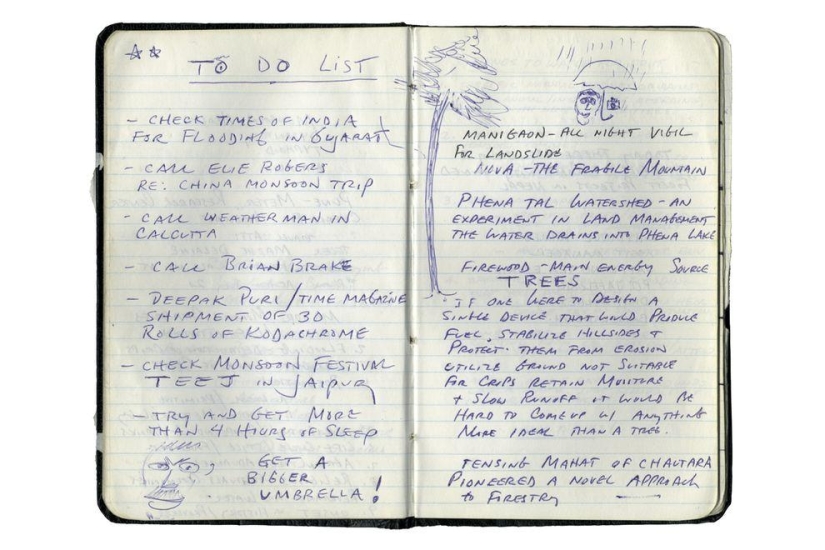 TO DO LIST
- CHECK TIMES OF INDIA
FOR FLOODING IN GUJARAT
- CALL ELIE ROGERS
RE: CHINA MONSOON TRIP
- CALL WEATHERMAN IN
CALCUTTA
- CALL BRIAN BRAKE
- DEEPAK PURI/TIME MAGAZINE
SHIPMENT OF 30
ROLLS OF KODACHROME
- CHECK MONSOON FESTIVAL
TEEJ IN JAIPUR
- TRY AND GET MORE
THAN 4 HOURS OF SLEEP
GET A
BIGGER
UMBRELLA!
MANIGAON-ALL NIGHT VIGIL
FOR LANDSLIDE
NOVA - THE FRAGILE MOUNTAIN
PHENA TAL WATERSHED - AN
EXPERIMENT IN LAND MANAGEMENT
THE WATER DRAINS INTO PHENA LAKE
FIREWOOD - MAIN ENERGY SOURCE
TREES
"IF ONE WERE TO DESIGN A
SINGLE DEVICE THAT WOULD PRODUCE
FUEL, STABILIZE HILLSIDES &
PROTECT THEM FROM EROSION
UTILIZE GROUND NOT SUITABLE
FOR CROPS RETAIN MOISTURE
& SLOW RUNOFF IT WOULD BE
HARD TO COME UP W/ ANYTHING
MORE IDEAL THAN A TREE.
TENSING MAHAT OF CHAUTARA
PIONEERED A NOVEL APPROACH
to FORESTRY